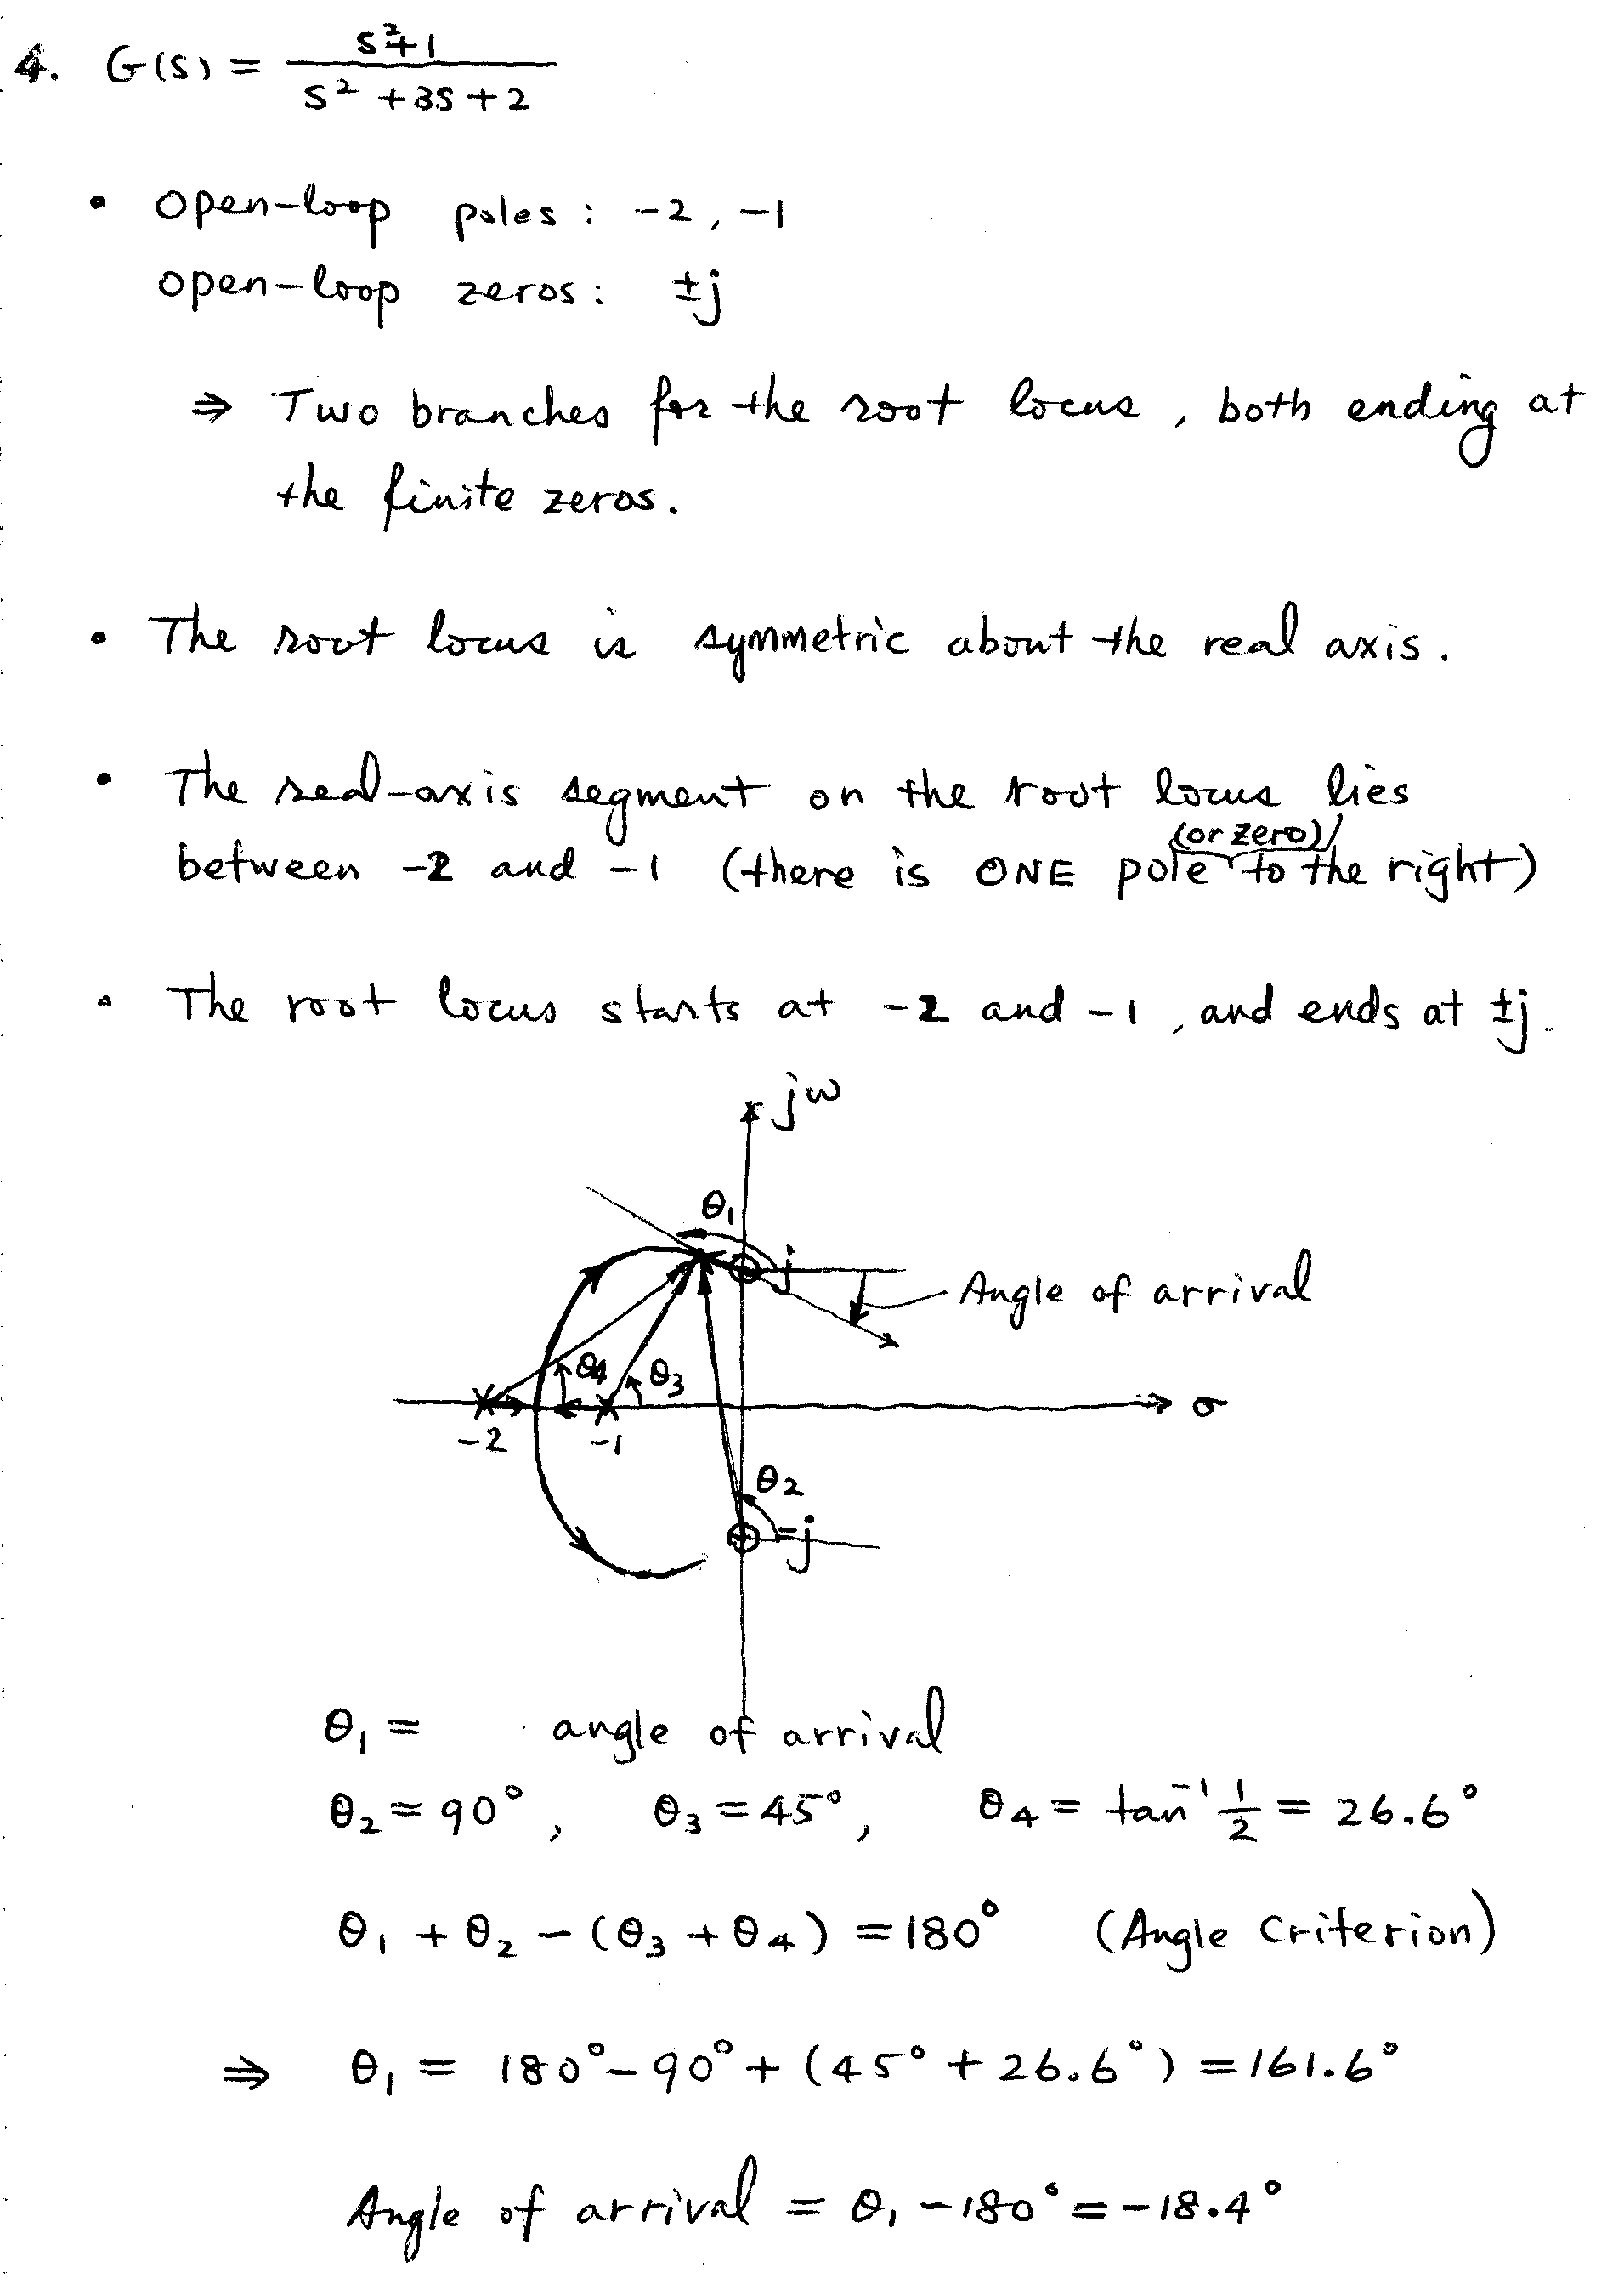 4. G(s) = s²+1 / s² + 3s + 2
• Open-loop poles : -2, -1
open-loop zeros : ±j
⇒ Two branches for the root locus, both ending at
the finite zeros.
• The root locus is symmetric about the real axis.
• The real-axis segment on the root locus lies
between -2 and -1 (there is ONE pole (or zero) to the right)
• The root locus starts at -2 and -1, and ends at ±j.
jω
θ₁
j
Angle of arrival
θ₄ θ₃
σ
-2 -1
θ₂
-j
θ₁ = angle of arrival
θ₂ = 90°, θ₃ = 45°, θ₄ = tan⁻¹ 1/2 = 26.6°
θ₁ + θ₂ - (θ₃ + θ₄) = 180° (Angle Criterion)
⇒ θ₁ = 180° - 90° + (45° + 26.6°) = 161.6°
Angle of arrival = θ₁ - 180° = -18.4°